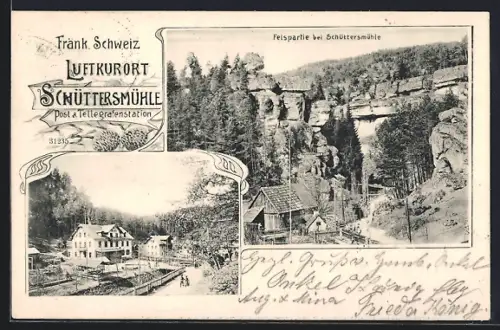 Fränk. Schweiz
LUFTKURORT
SCHÜTTERSMÜHLE
Post u. Tellegrafenstation
31235
Felspartie bei Schüttersmühle
Onkel
Onkel
Aug. & Mina
Frieda König.